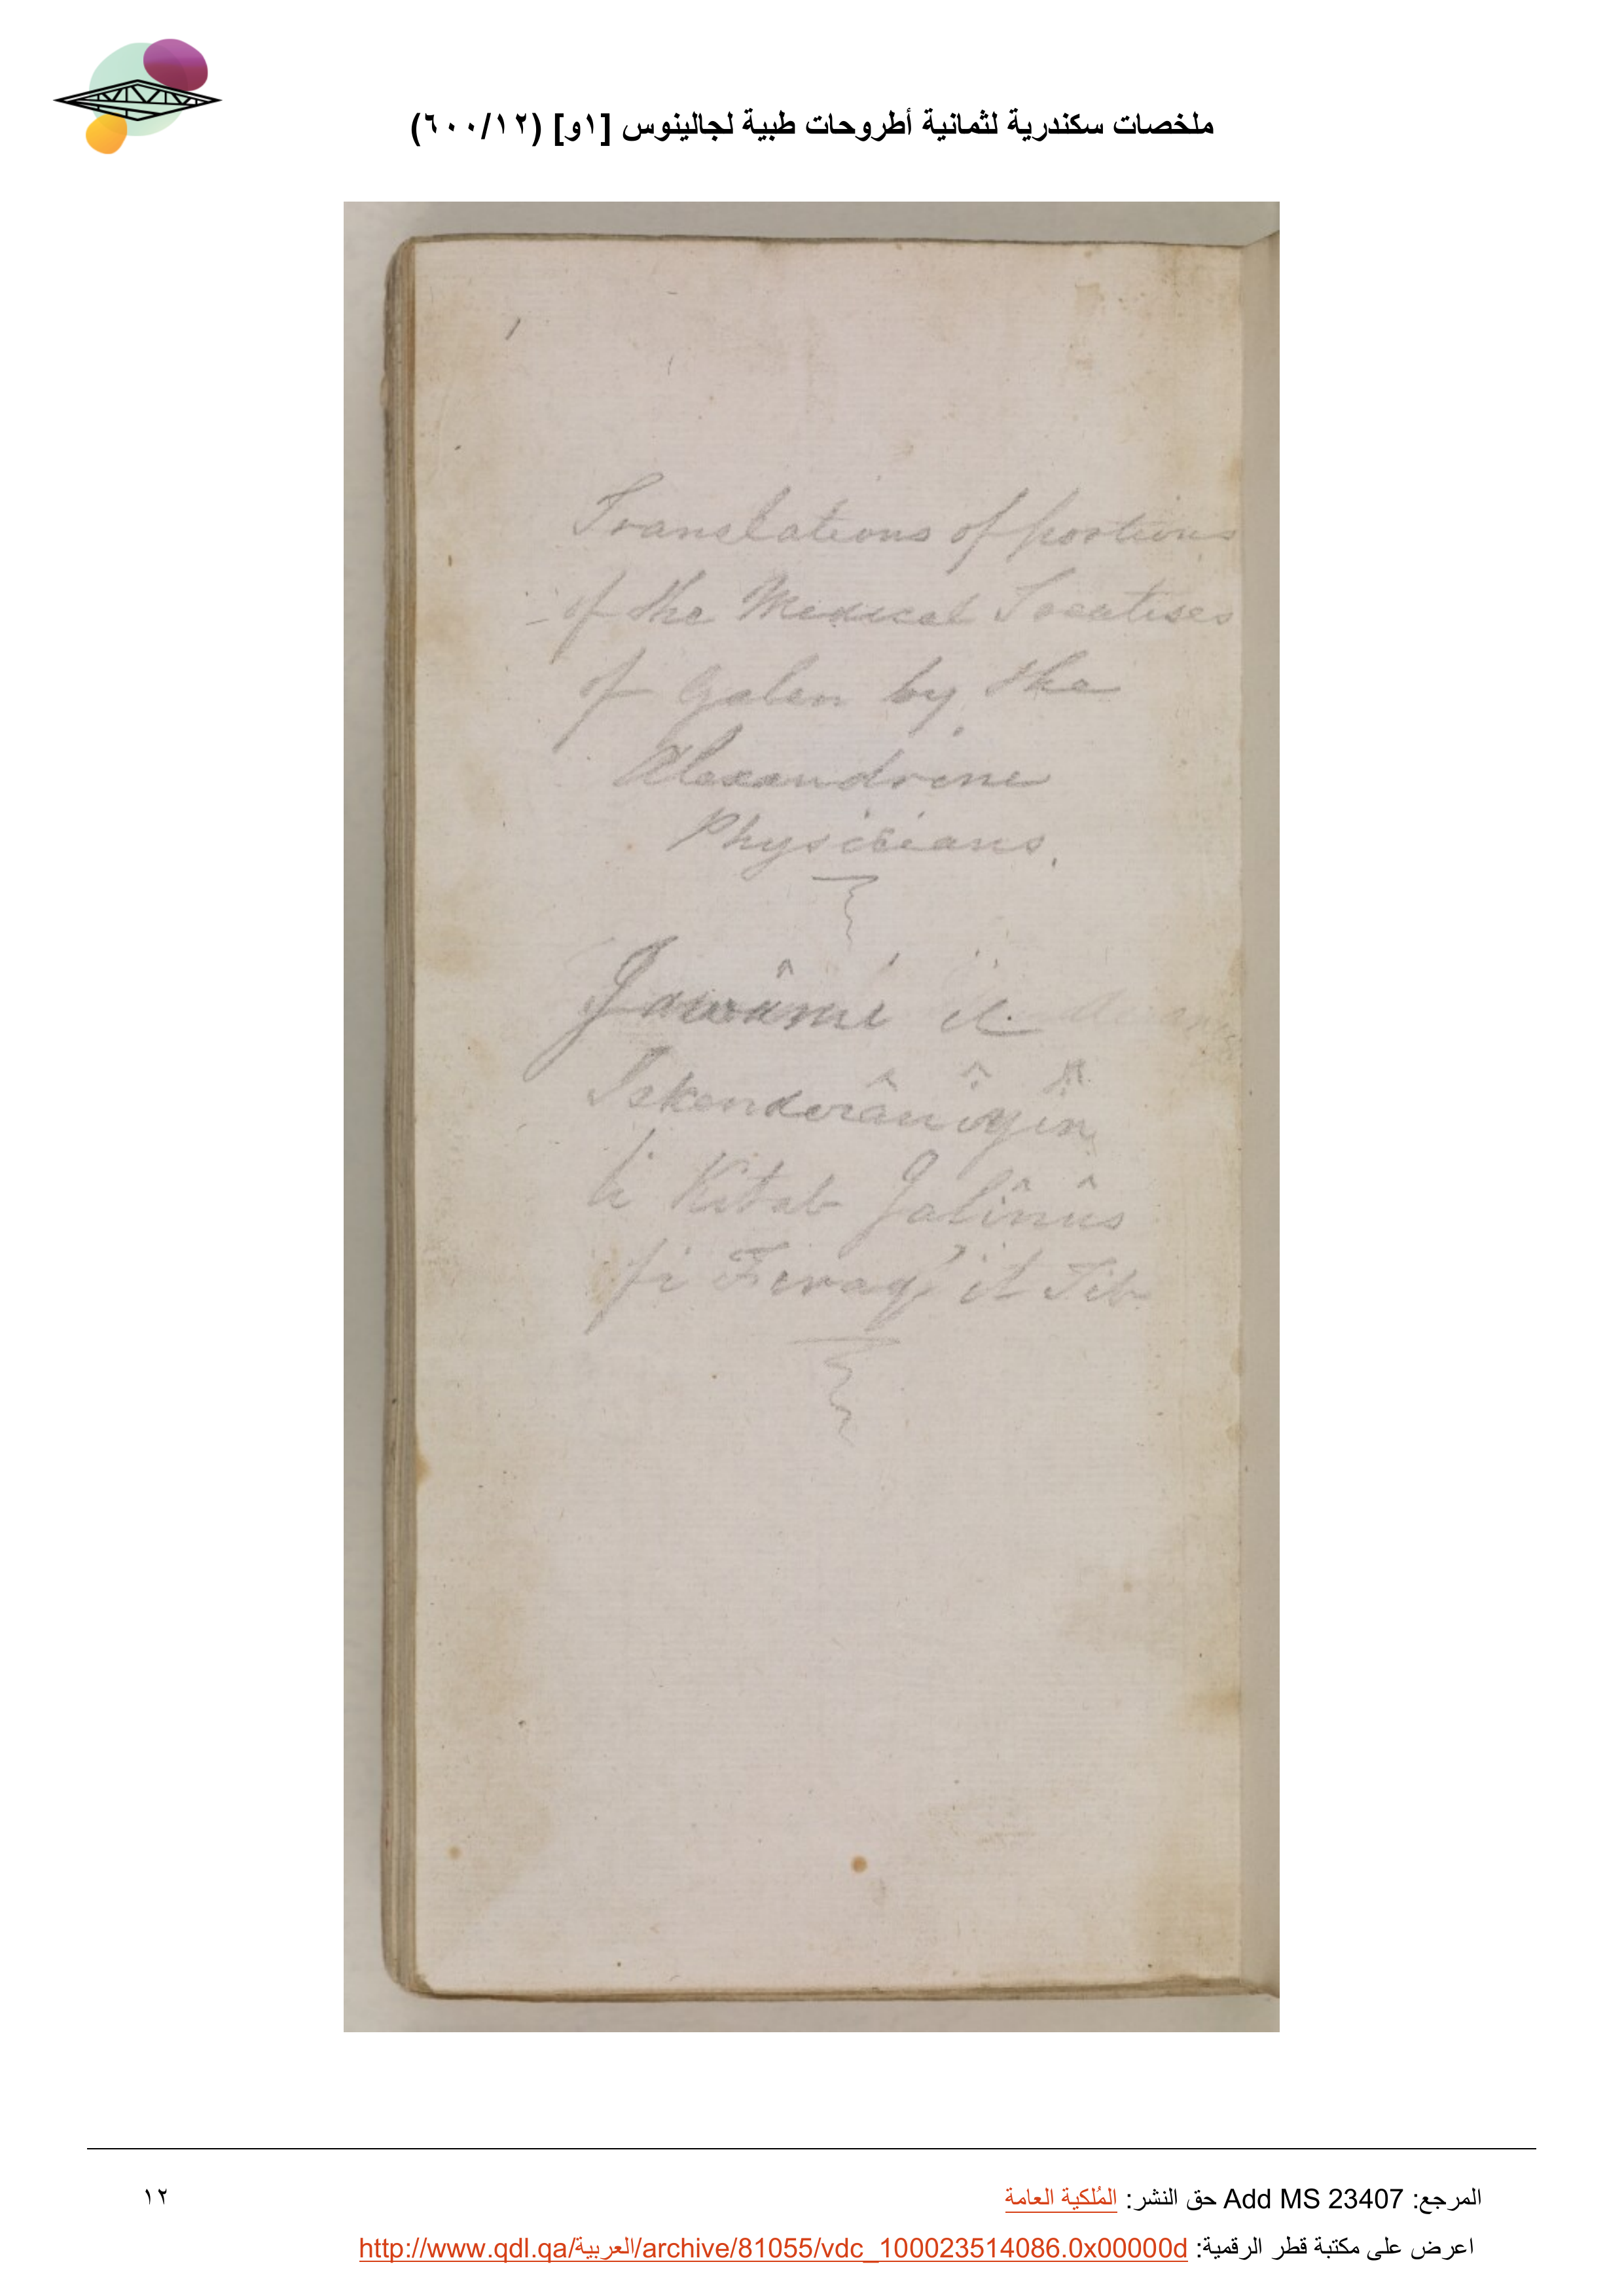 ملخصات سكندرية لثمانية أطروحات طبية لجالينوس [١و] (٦٠٠/١٢)
Translations of portions
of the Medical Treatises
of Galen by the
Alexandrine
Physicians.
Jawâmi el
Iskenderânîyîn
li Kitab Jalînûs
fi Firaq it Tib
المرجع: Add MS 23407 حق النشر: المُلكية العامة
١٢
اعرض على مكتبة قطر الرقمية: http://www.qdl.qa/العربية/archive/81055/vdc_100023514086.0x00000d